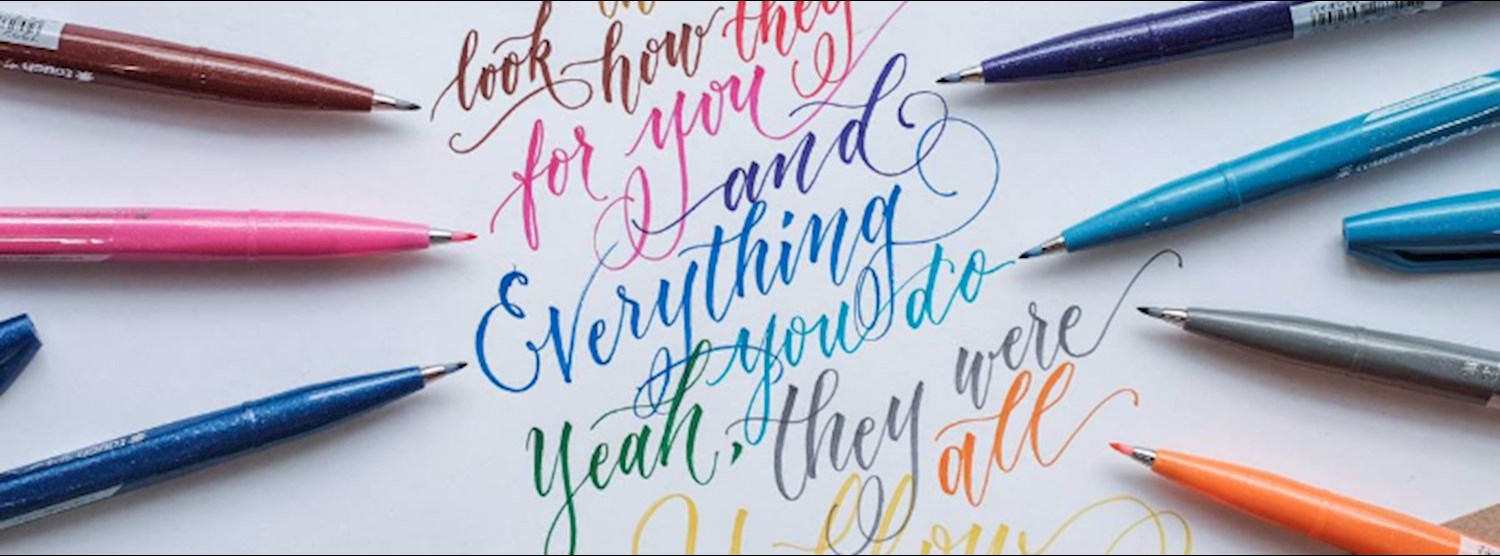 look how they
for you
and
Everything
you do
Yeah, they were
all
Yellow
touch